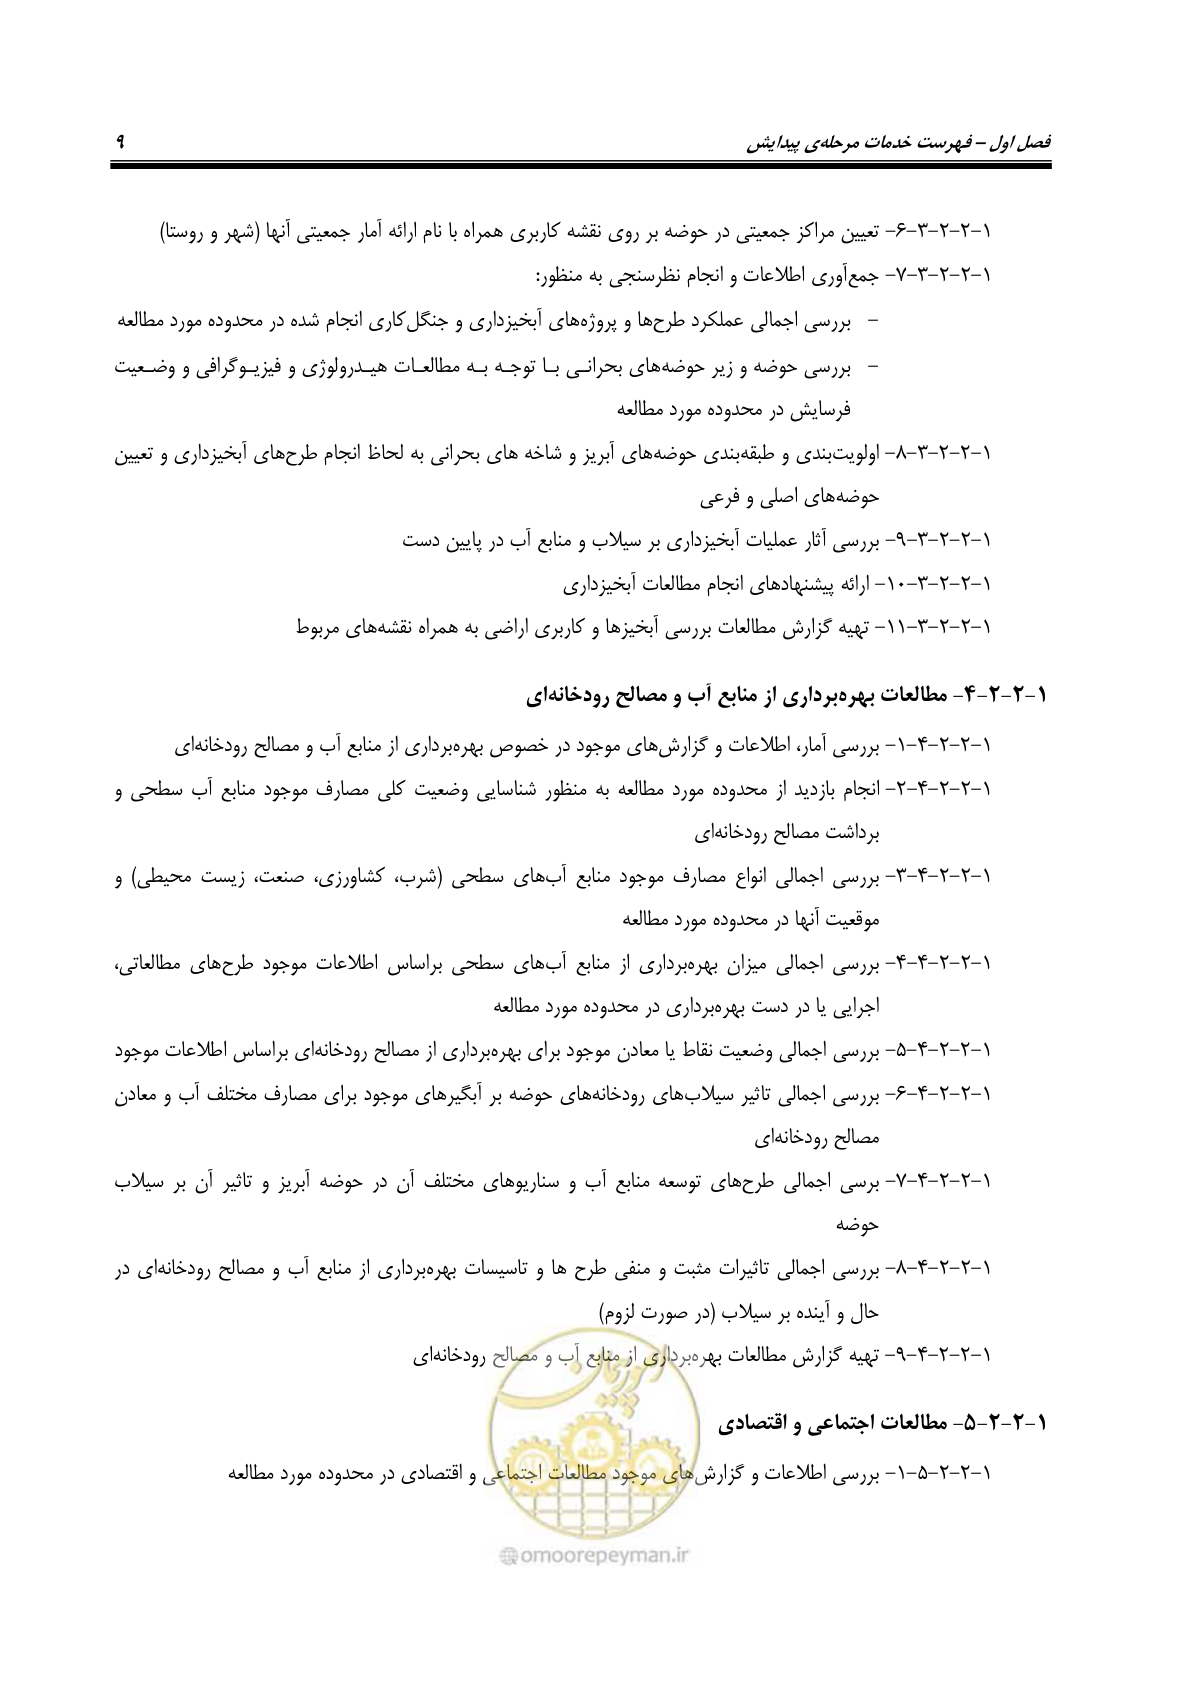 فصل اول – فهرست خدمات مرحله‌ی پیدایش ۹
۱-۲-۲-۳-۶- تعیین مراکز جمعیتی در حوضه بر روی نقشه کاربری همراه با نام ارائه آمار جمعیتی آنها (شهر و روستا)
۱-۲-۲-۳-۷- جمع‌آوری اطلاعات و انجام نظرسنجی به منظور:
– بررسی اجمالی عملکرد طرح‌ها و پروژه‌های آبخیزداری و جنگل‌کاری انجام شده در محدوده مورد مطالعه
– بررسی حوضه و زیر حوضه‌های بحرانی با توجه به مطالعات هیدرولوژی و فیزیوگرافی و وضعیت
فرسایش در محدوده مورد مطالعه
۱-۲-۲-۳-۸- اولویت‌بندی و طبقه‌بندی حوضه‌های آبریز و شاخه های بحرانی به لحاظ انجام طرح‌های آبخیزداری و تعیین
حوضه‌های اصلی و فرعی
۱-۲-۲-۳-۹- بررسی آثار عملیات آبخیزداری بر سیلاب و منابع آب در پایین دست
۱-۲-۲-۳-۱۰- ارائه پیشنهادهای انجام مطالعات آبخیزداری
۱-۲-۲-۳-۱۱- تهیه گزارش مطالعات بررسی آبخیزها و کاربری اراضی به همراه نقشه‌های مربوط
۱-۲-۲-۴- مطالعات بهره‌برداری از منابع آب و مصالح رودخانه‌ای
۱-۲-۲-۴-۱- بررسی آمار، اطلاعات و گزارش‌های موجود در خصوص بهره‌برداری از منابع آب و مصالح رودخانه‌ای
۱-۲-۲-۴-۲- انجام بازدید از محدوده مورد مطالعه به منظور شناسایی وضعیت کلی مصارف موجود منابع آب سطحی و
برداشت مصالح رودخانه‌ای
۱-۲-۲-۴-۳- بررسی اجمالی انواع مصارف موجود منابع آب‌های سطحی (شرب، کشاورزی، صنعت، زیست محیطی) و
موقعیت آنها در محدوده مورد مطالعه
۱-۲-۲-۴-۴- بررسی اجمالی میزان بهره‌برداری از منابع آب‌های سطحی براساس اطلاعات موجود طرح‌های مطالعاتی،
اجرایی یا در دست بهره‌برداری در محدوده مورد مطالعه
۱-۲-۲-۴-۵- بررسی اجمالی وضعیت نقاط یا معادن موجود برای بهره‌برداری از مصالح رودخانه‌ای براساس اطلاعات موجود
۱-۲-۲-۴-۶- بررسی اجمالی تاثیر سیلاب‌های رودخانه‌های حوضه بر آبگیرهای موجود برای مصارف مختلف آب و معادن
مصالح رودخانه‌ای
۱-۲-۲-۴-۷- برسی اجمالی طرح‌های توسعه منابع آب و سناریوهای مختلف آن در حوضه آبریز و تاثیر آن بر سیلاب
حوضه
۱-۲-۲-۴-۸- بررسی اجمالی تاثیرات مثبت و منفی طرح ها و تاسیسات بهره‌برداری از منابع آب و مصالح رودخانه‌ای در
حال و آینده بر سیلاب (در صورت لزوم)
۱-۲-۲-۴-۹- تهیه گزارش مطالعات بهره‌برداری از منابع آب و مصالح رودخانه‌ای
امور پیمان
۱-۲-۲-۵- مطالعات اجتماعی و اقتصادی
۱-۲-۲-۵-۱- بررسی اطلاعات و گزارش‌های موجود مطالعات اجتماعی و اقتصادی در محدوده مورد مطالعه
omoorepeyman.ir